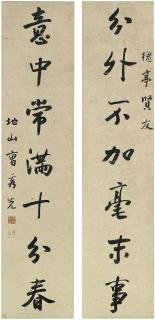 槐亭賢友
分外不加毫末事
意中常滿十分春
地山曹秀先